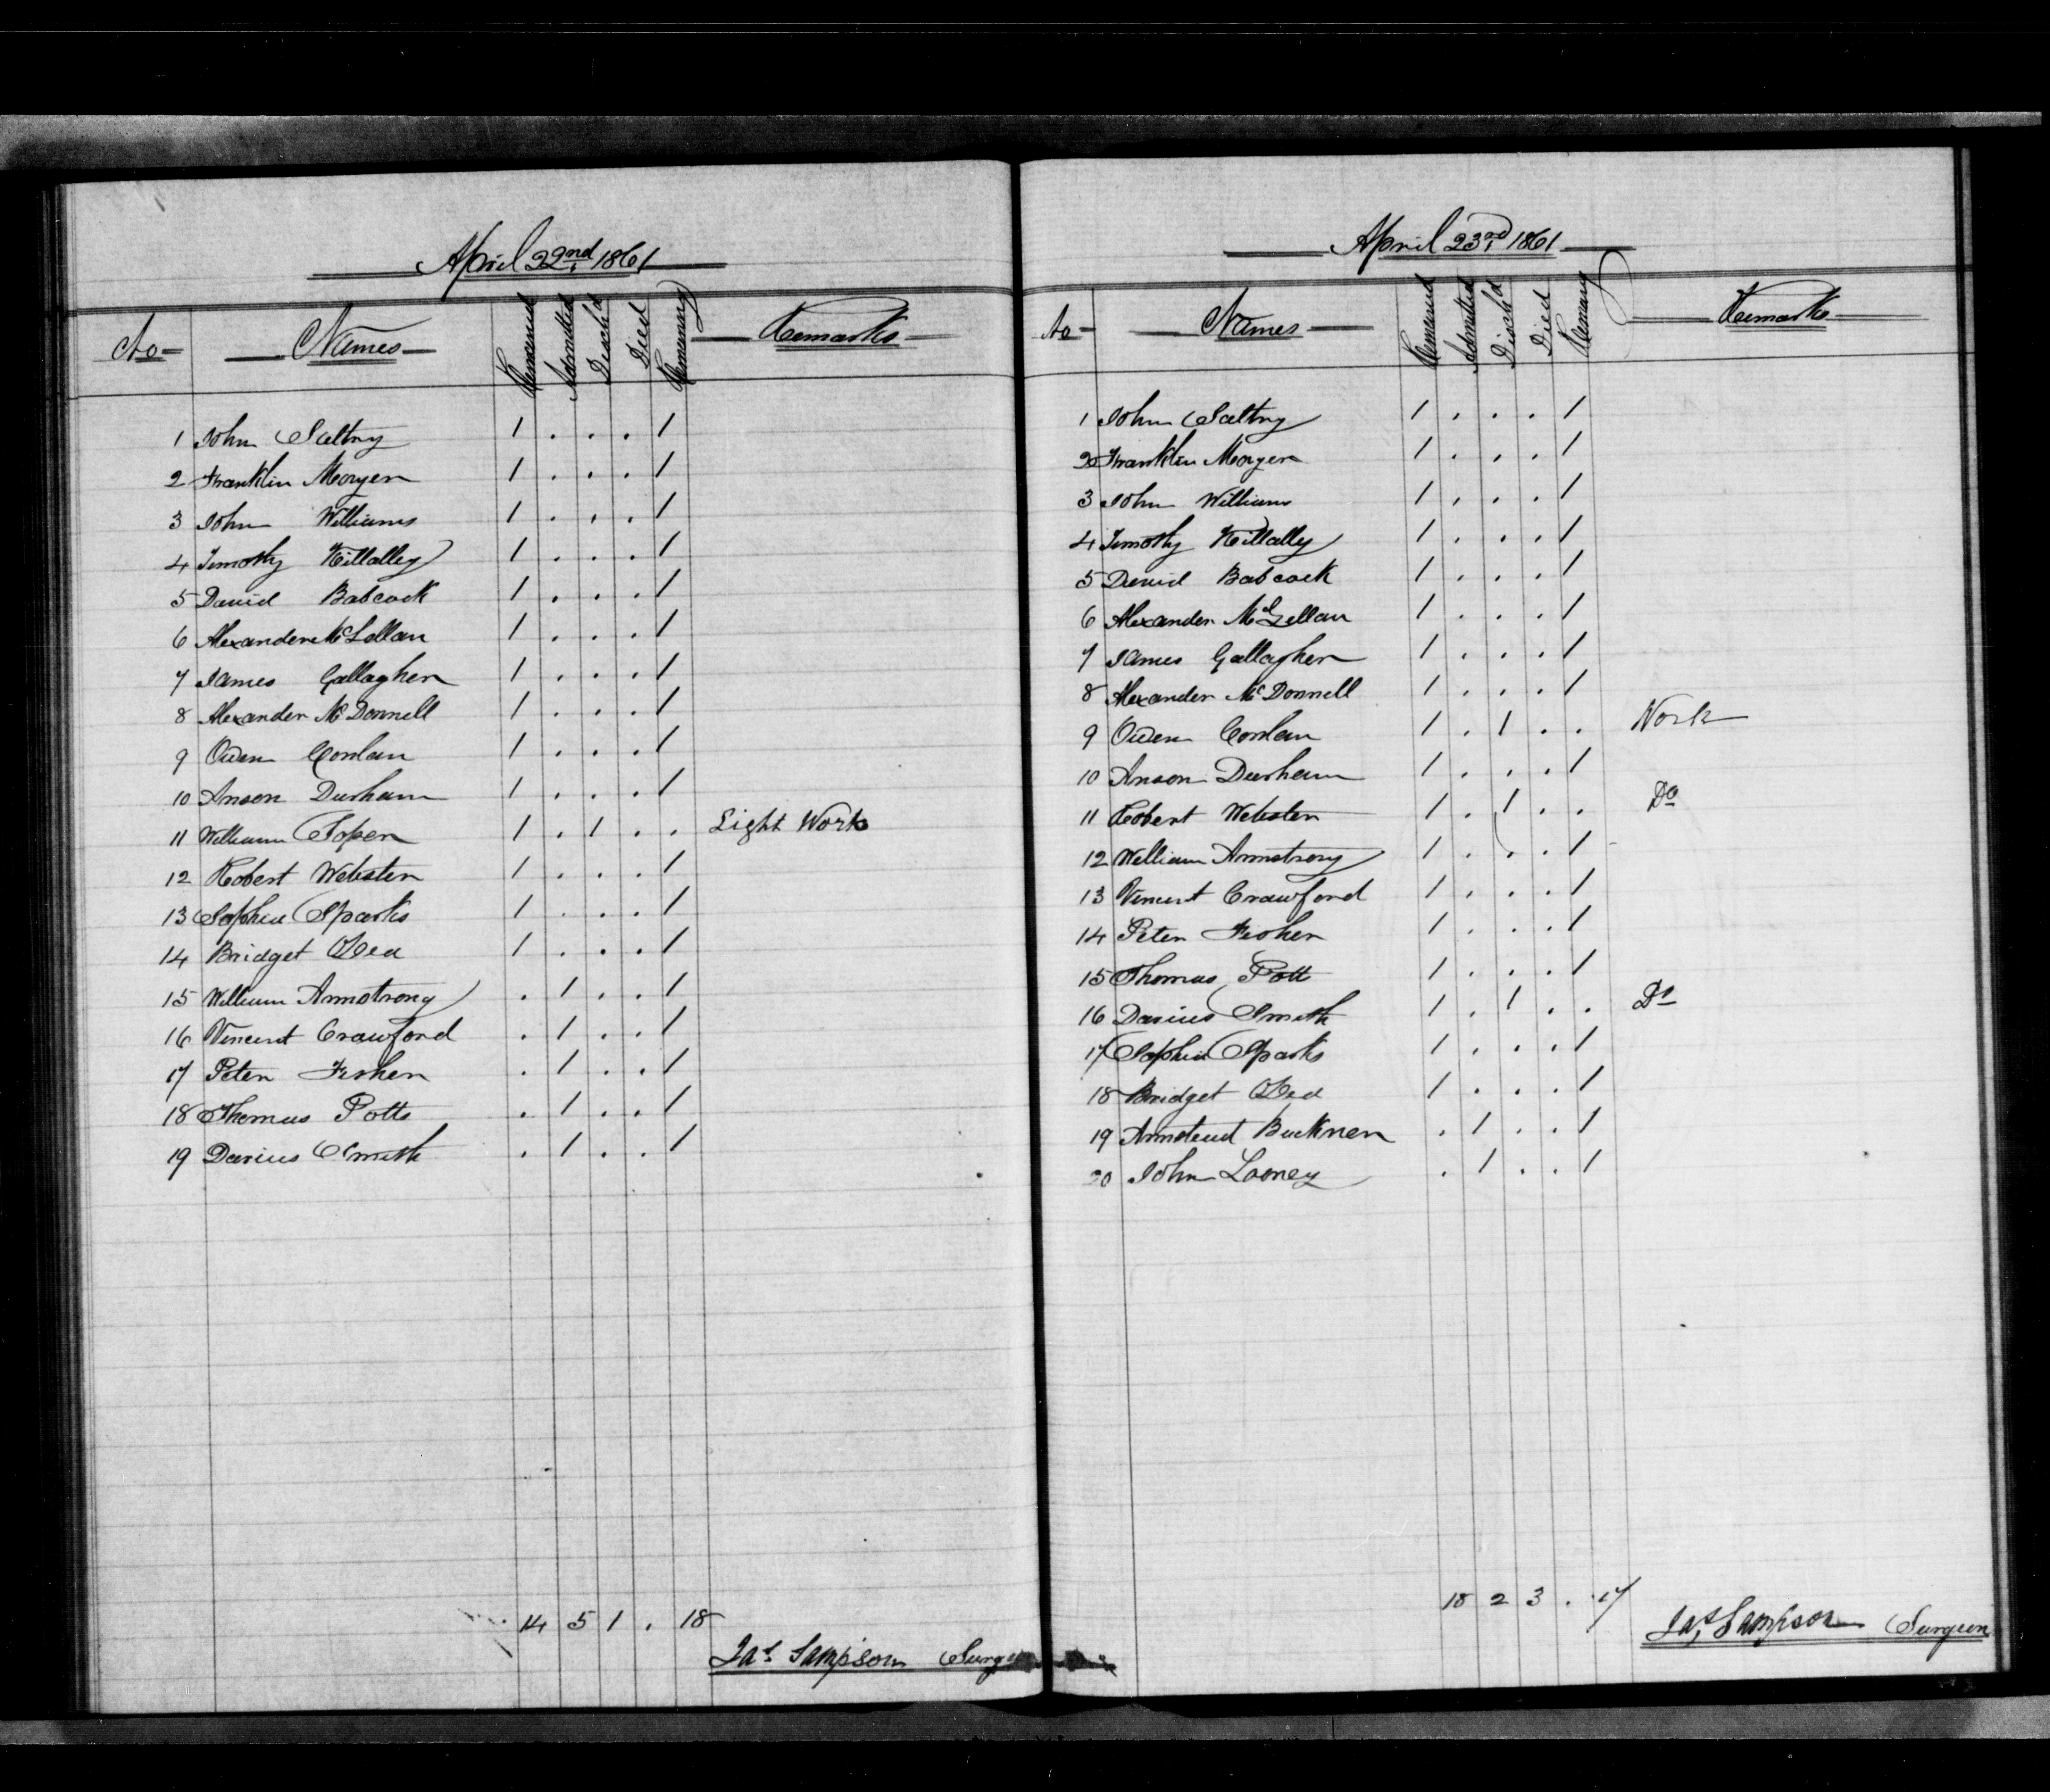 April 22nd 1861
No Names Remained Admitted Disch'd Died Remaining Remarks
1 John Saltry 1 . . . 1
2 Franklin Moryer 1 . . . 1
3 John Williams 1 . . . 1
4 Timothy Killalley 1 . . . 1
5 David Babcock 1 . . . 1
6 Alexander McLellan 1 . . . 1
7 James Gallagher 1 . . . 1
8 Alexander McDonnell 1 . . . 1
9 Owen Conlan 1 . . . 1
10 Anson Durham 1 . . . 1
11 William Soper 1 . 1 . . Light Work
12 Robert Webster 1 . . . 1
13 Sophia Sparks 1 . . . 1
14 Bridget O'Dea 1 . . . 1
15 William Armstrong . 1 . . 1
16 Vincent Crawford . 1 . . 1
17 Peter Fisher . 1 . . 1
18 Thomas Potts . 1 . . 1
19 Darius Smith . 1 . . 1
14 5 1 . 18
Jas Sampson Surge
April 23rd 1861
No Names Remained Admitted Disch'd Died Remaing Remarks
1 John Saltry 1 . . . 1
2 Franklin Moryer 1 . . . 1
3 John Williams 1 . . . 1
4 Timothy Killally 1 . . . 1
5 David Babcock 1 . . . 1
6 Alexander McLellan 1 . . . 1
7 James Gallagher 1 . . . 1
8 Alexander McDonnell 1 . . . 1
9 Owen Conlan 1 . 1 . . Work
10 Anson Durham 1 . . . 1
11 Robert Webster 1 . 1 . . Do
12 William Armstrong 1 . . . 1
13 Vincent Crawford 1 . . . 1
14 Peter Fisher 1 . . . 1
15 Thomas Pott 1 . . . 1
16 Darius Smith 1 . 1 . . Do
17 Sophia Sparks 1 . . . 1
18 Bridget O'Dea 1 . . . 1
19 Buckner . 1 . . 1
20 John Looney . 1 . . 1
18 2 3 . 17
Jas Sampson Surgeon